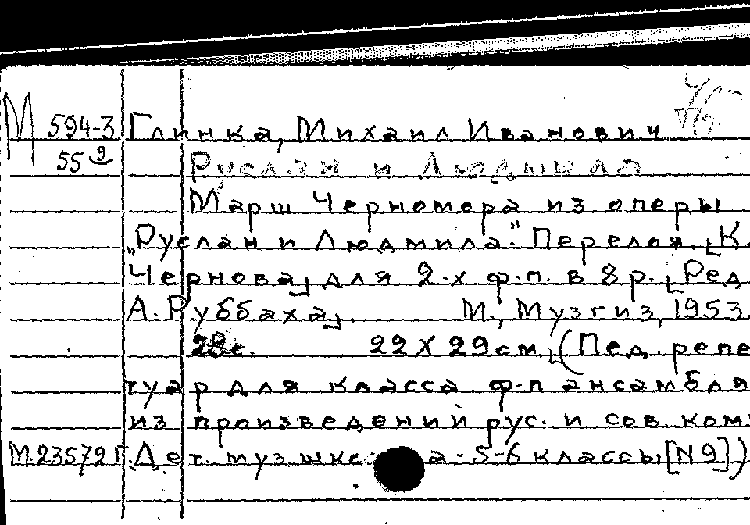 М 594-3 Глинка, Михаил Иванович
55 Руслан и Людмила
Марш Черномора из оперы
„Руслан и Людмила." Перелож. [К
Чернова] для 2-х ф-п. в 8 р. [Ред
А. Руббаха]. М., Музгиз, 1953
28 с. 22 X 29 см, (Пед. репе
туар для класса ф-п ансамбля
из произведений рус. и сов. ком
М.23572 Дет. муз. 5-6 классы [N9])